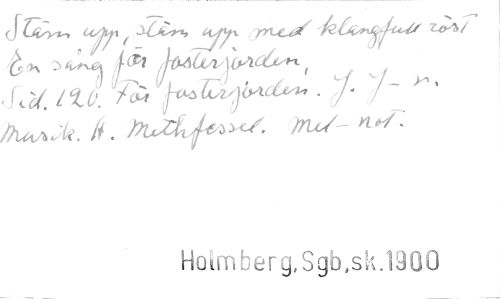 Stäm upp, stäm upp med klangfull röst
En sång för fosterjorden,
Sid. 120. För fosterjorden. J. J–n.
Musik. A. Methfessel. Mel–not.
Holmberg, Sgb, sk. 1900